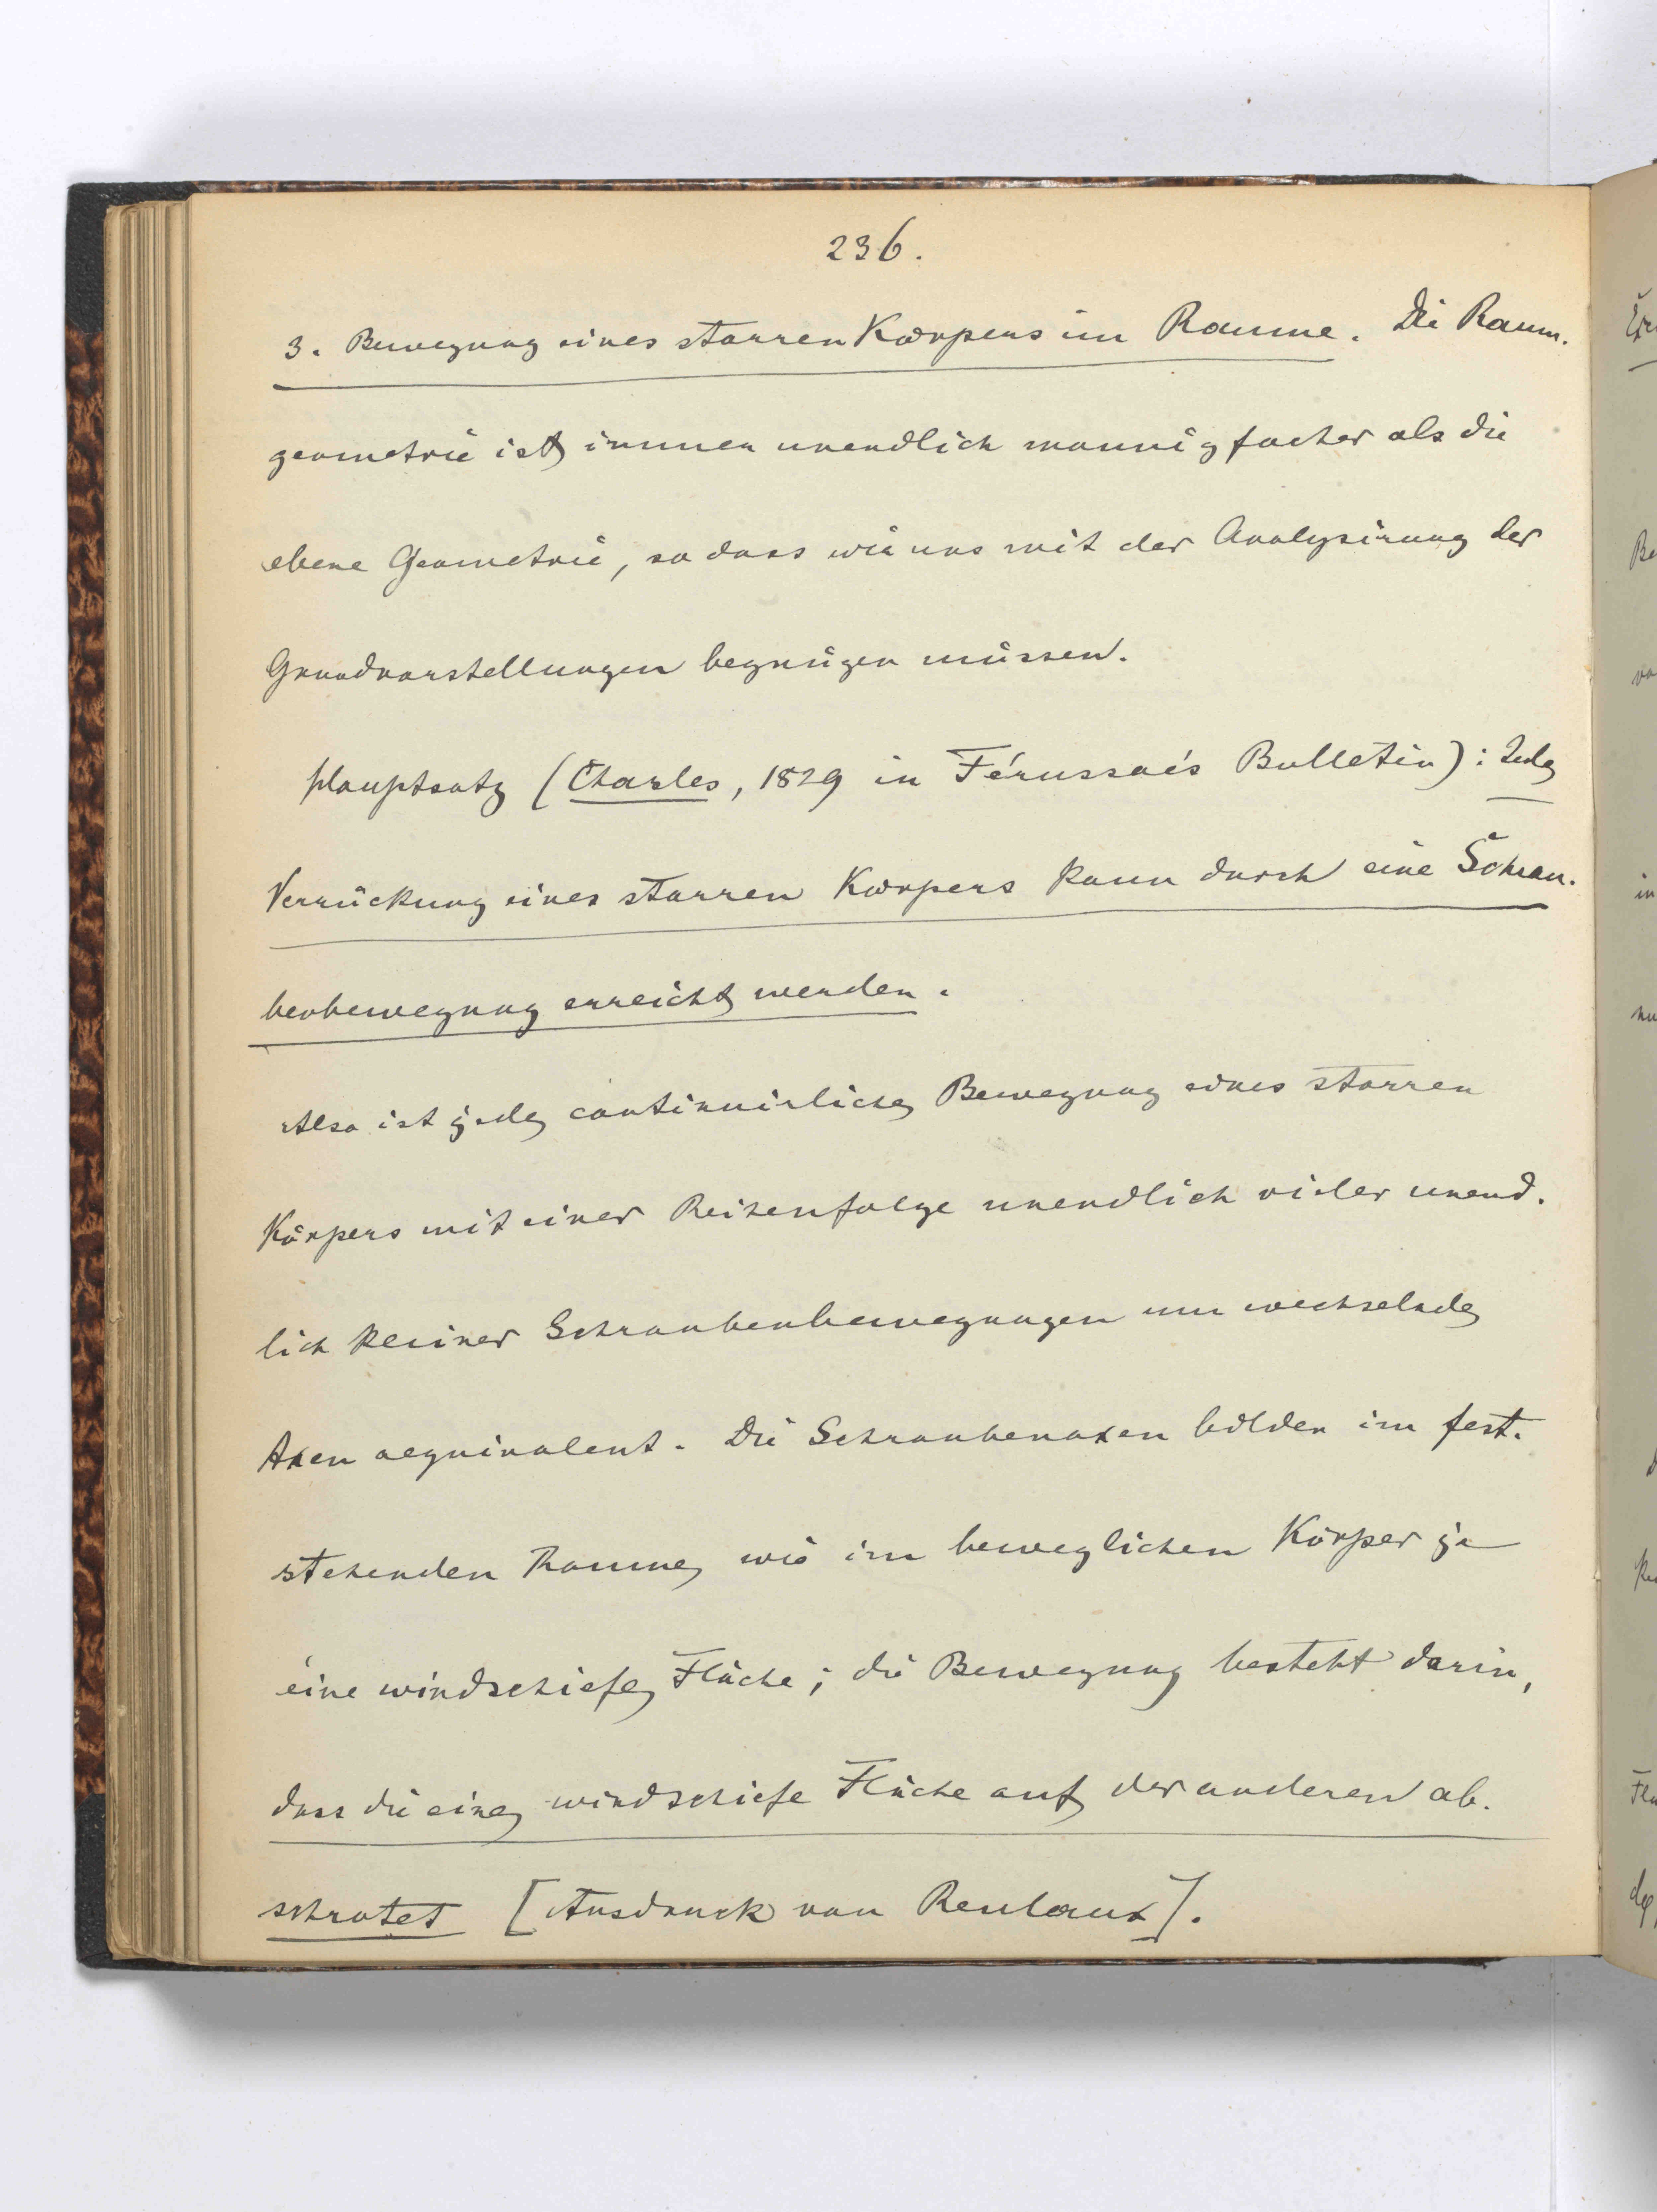 236.
3. Bewegung eines starren Koerpers im Raume. Die Raum-
geometrie ist immer unendlich mannigfacher als die
ebene Geometrie, so dass wir uns mit der Analysirung der
Grundvorstellungen begnügen müssen.
Hauptsatz (Chasles, 1829 in Férussac's Bulletin): Jede
Verrückung eines starren Koerpers kann durch eine Schrau-
benbewegung erreicht werden.
Also ist jede continuirliche Bewegung eines starren
Körpers mit einer Reihenfolge unendlich vieler unend-
lich kleiner Schraubenbewegungen um wechselnde
Axen aequivalent. Die Schraubenaxen bilden im fest-
stehenden Raume, wie im beweglichen Körper je
eine windschiefe Fläche; die Bewegung besteht darin,
dass die eine windschiefe Fläche auf der anderen ab-
schrotet [Ausdruck von Reuleaux].